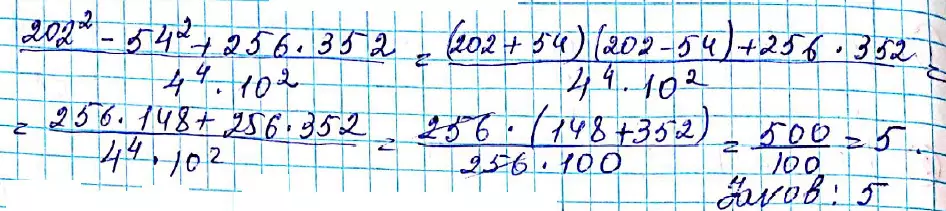 (202² - 54² + 256 · 352) / (4⁴ · 10²) = ((202 + 54)(202 - 54) + 256 · 352) / (4⁴ · 10²) =
= (256 · 148 + 256 · 352) / (4⁴ · 10²) = (256 · (148 + 352)) / (256 · 100) = 500 / 100 = 5.
Жавоб: 5